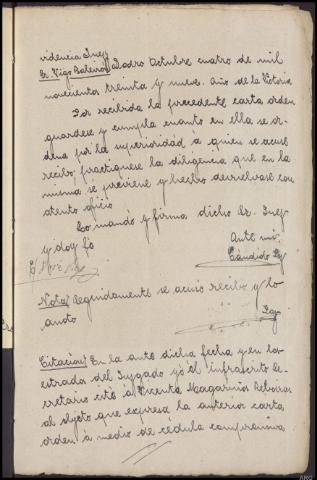 videncia Juez
Sr. Vigo Baleiron Padrón Octubre cuatro de mil
novecientos treinta y nueve. Año de la Victoria
Por recibida la precedente carta orden
guardese y cumpla cuanto en ella se or-
dena por la superioridad á quien se acuse
recibo practiquese la diligencia que en la
misma se previene y hecho devuelvase con
atento oficio
Lo mandó y firma dicho Sr. Juez
y doy fé
Ante mi:
Cándido
Nota/ Seguidamente se acusó recibo y lo
anoto
Citacion/ En la ante dicha fecha y en los
estrados del Juzgado yo el infrascrito Se-
cretario cité á Vicenta Magariños Reboiras
al objeto que expresa la anterior carta
orden á medio de cédula comprensiva